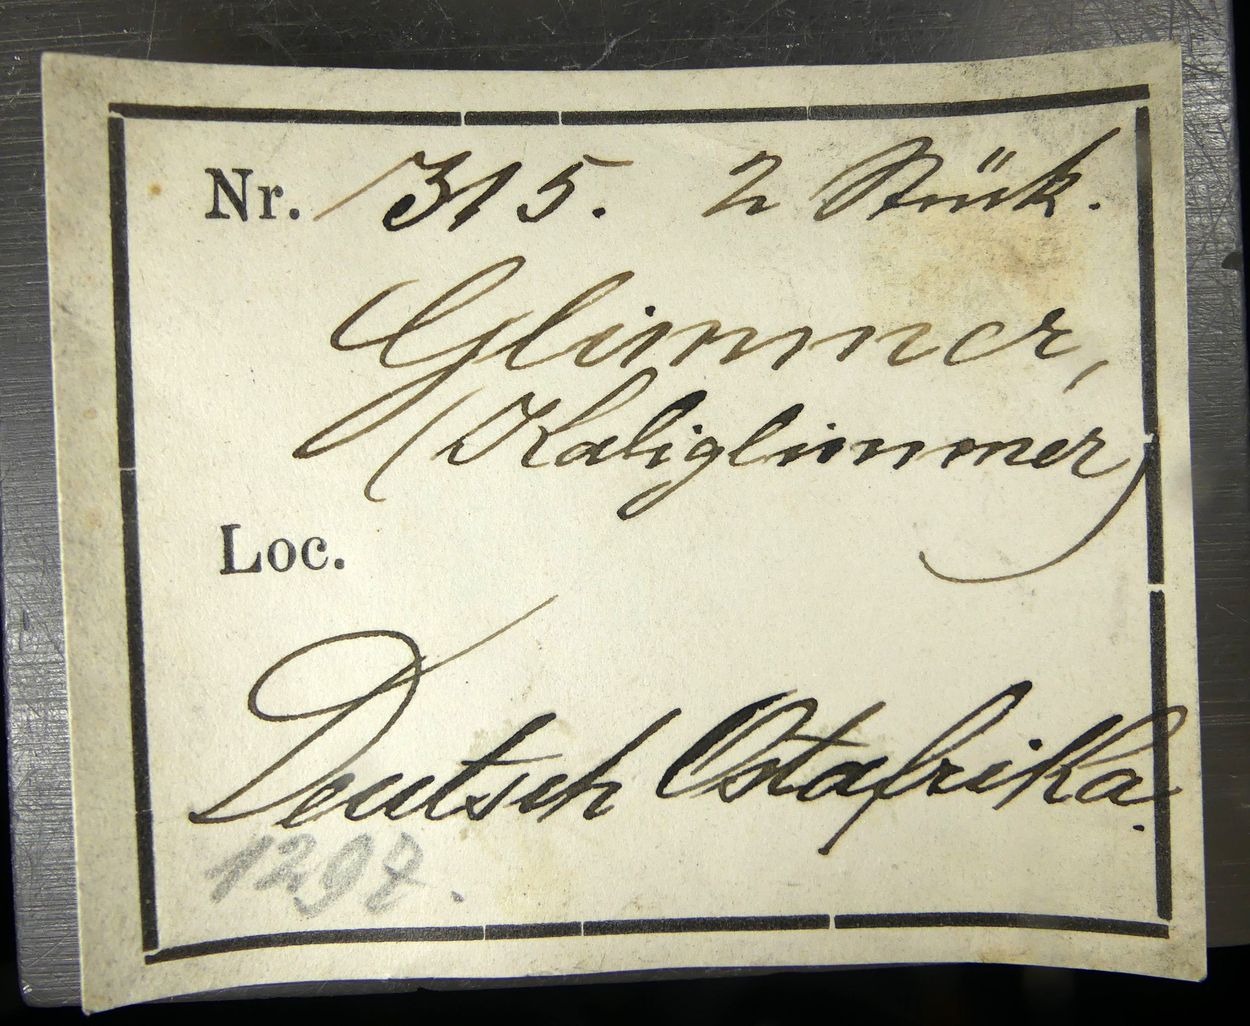 Nr. 315. 2 Stük.
Glimmer,
(Kaliglimmer)
Loc.
Deutsch Ostafrika.
1297.